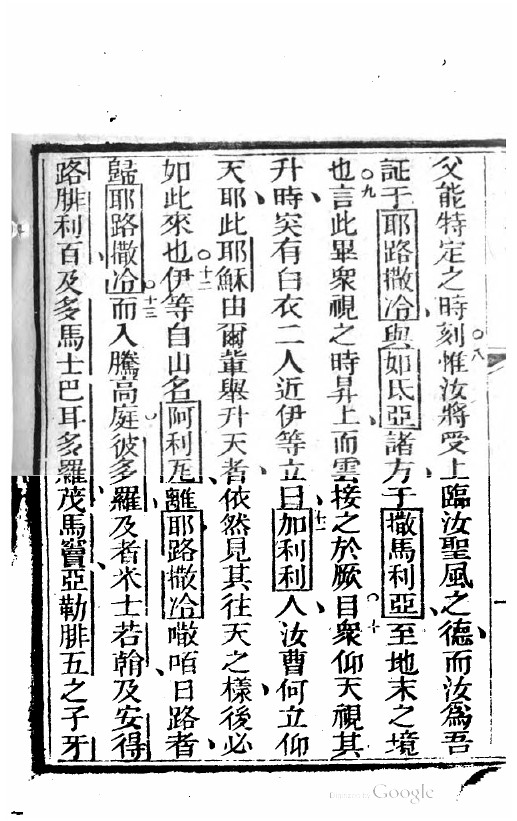 父能特定之時刻○八惟汝將受上臨汝聖風之德、而汝為吾
証于耶路撒冷、與如氐亞諸方、于撒馬利亞、至地末之境
也○九言此畢眾視之時昇上、而雲接之於厥目○十眾仰天視其
升時、突有白衣二人近伊等立○十一曰加利利人、汝曹何立仰
天耶、此耶穌由爾輩舉升天者、依然見其往天之樣、後必
如此來也○十二伊等自山名阿利瓦、離耶路撒冷嗷咟日路者、
歸耶路撒冷○十三而入騰高庭、彼多羅、及者米士若翰、及安得
路腓利百、及多馬士巴耳多羅茂、馬竇、亞勒腓五之子牙
Digitized by Google